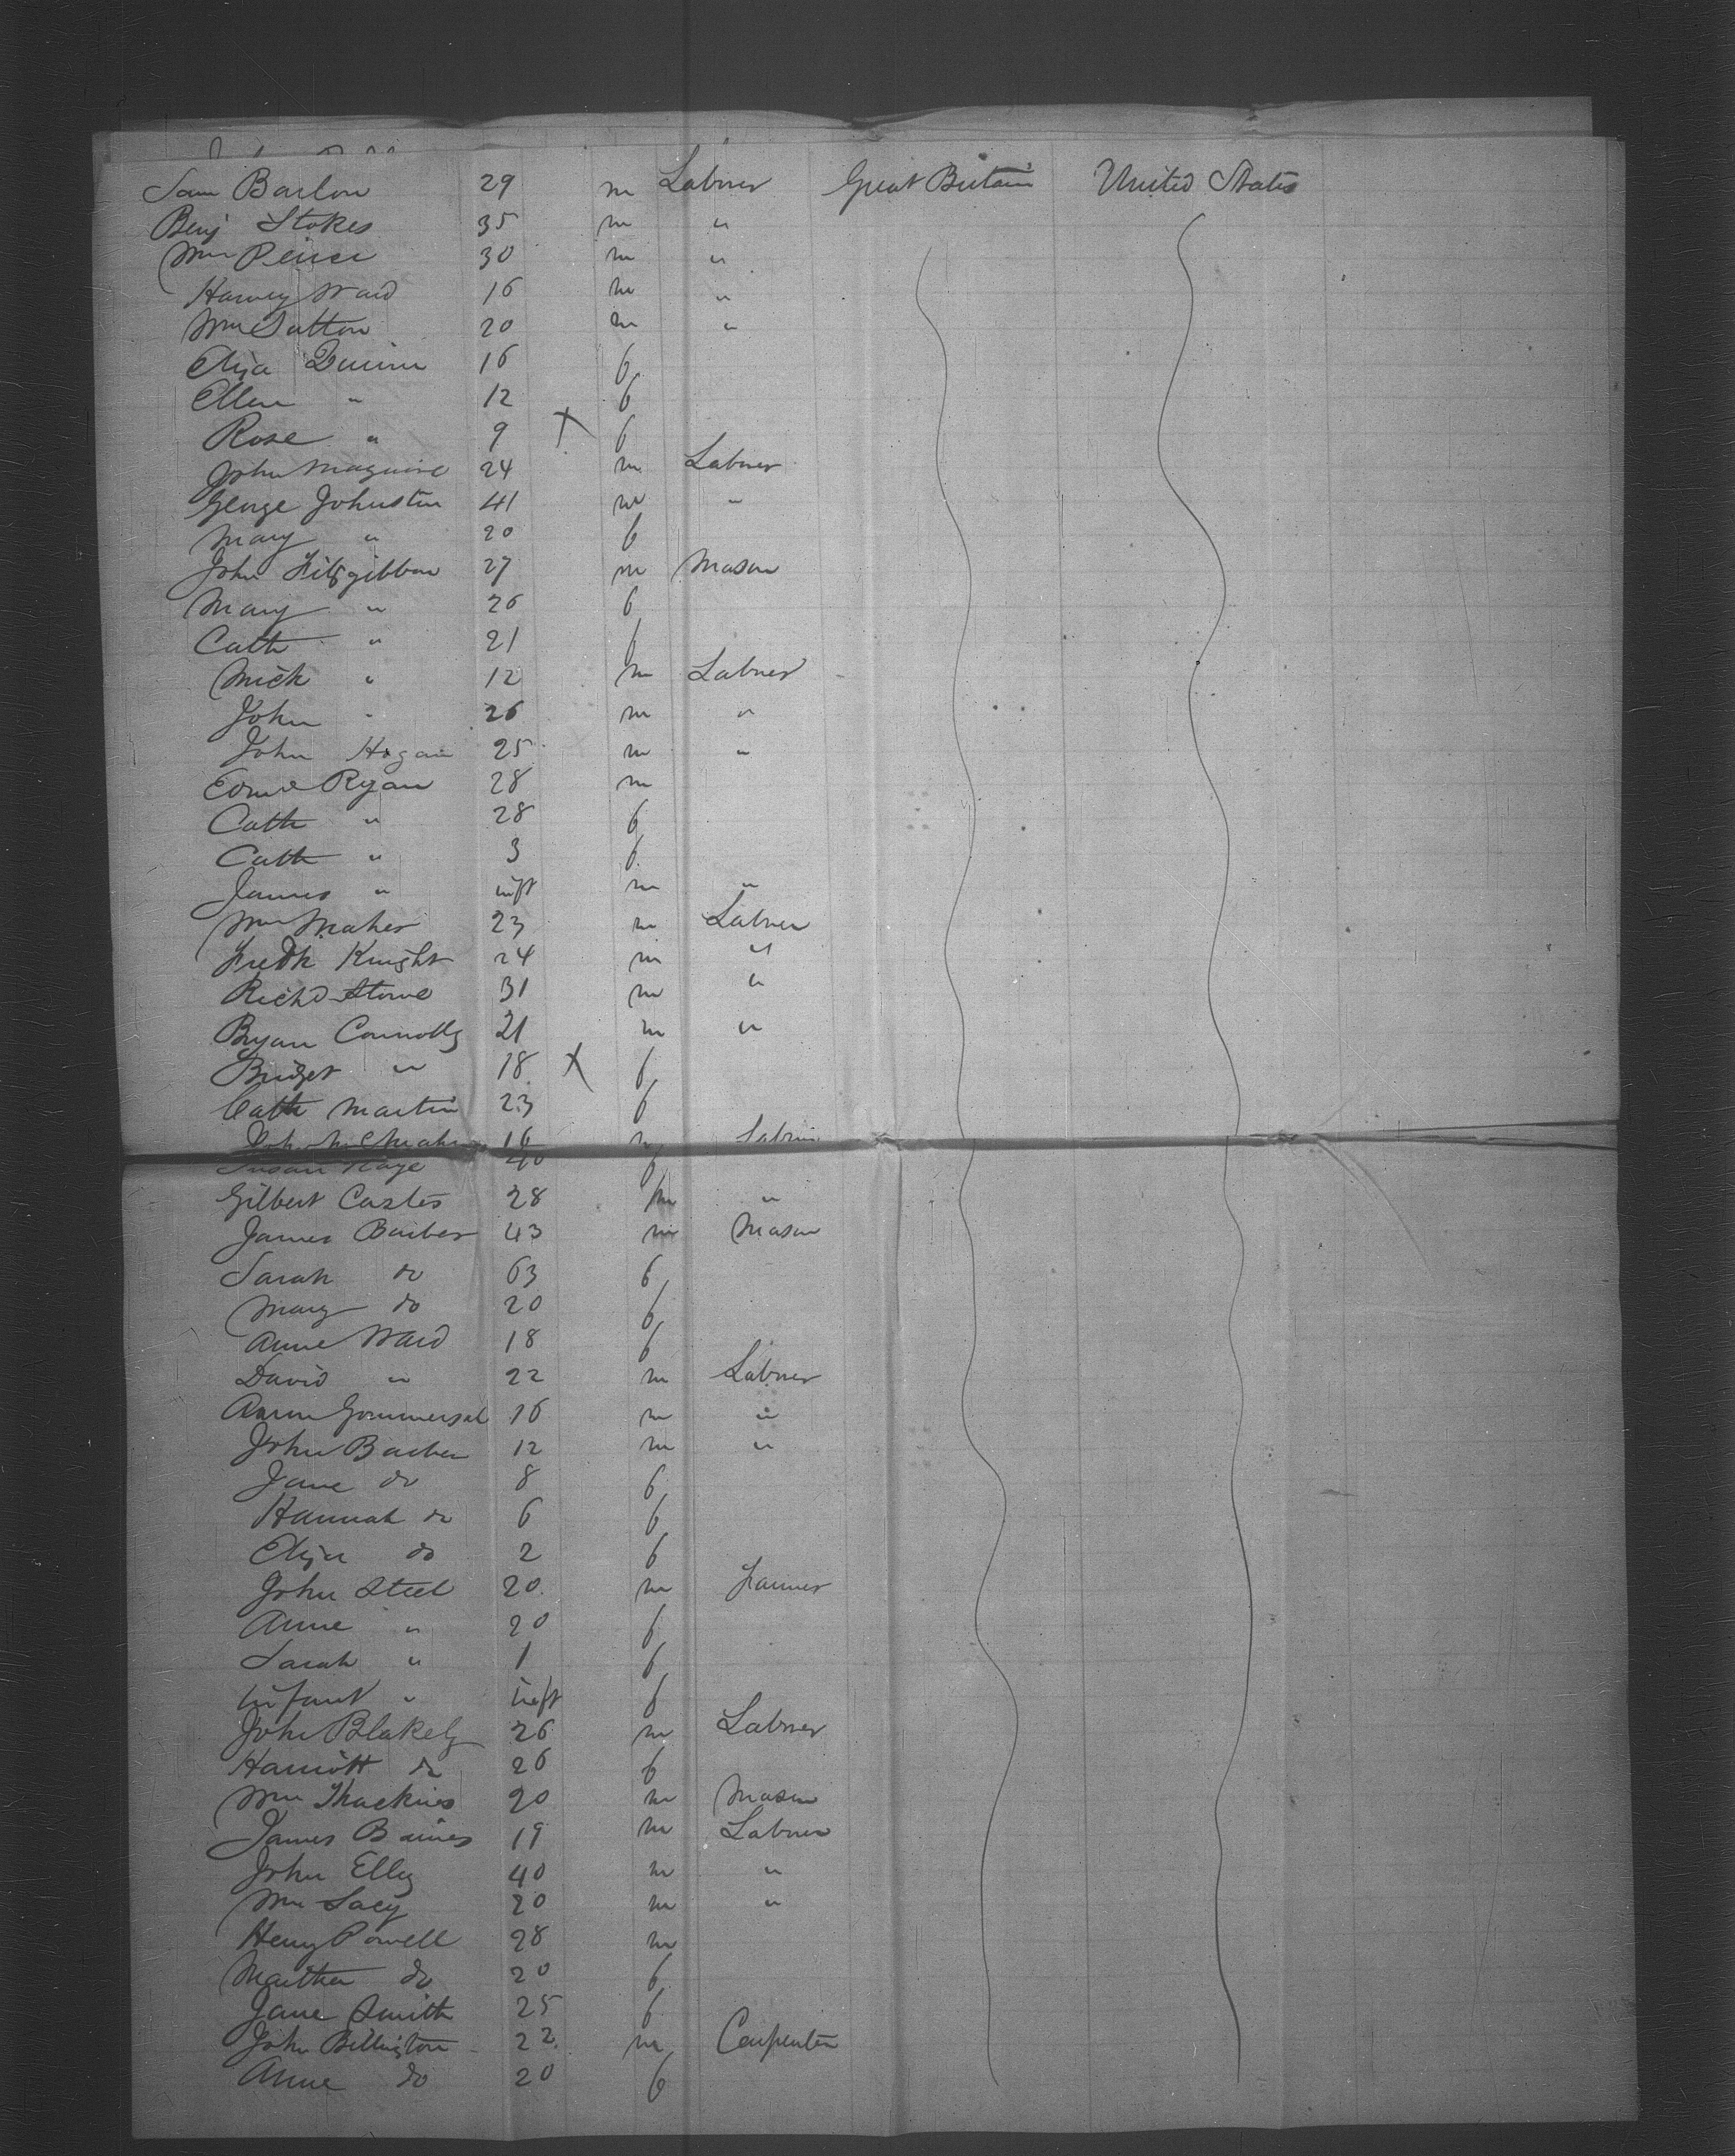 Sam Barlow 29 m Labrer Great Britain United States
Benj Stokes 35 m "
Wm 30 m "
Harvey Ward 16 m "
Wm Sutton 20 m "
Eliza Quinn 16 f
Ellen " 12 f
Rose " 9 X f
John Maguire 24 m Labrer
George Johnston 41 m "
Mary " 20 f
John Fitzgibbon 27 m Mason
Mary " 26 f
Cath " 21 f
Mich " 12 m Labrer
John " 26 m "
John Hogan 25 m "
Edmd Ryan 28 m
Cath " 28 f
Cath " 3 f
James " inft m "
Wm Maher 23 m Labrer
Fredk Knight 24 m "
Richd Stowe 31 m "
Bryan Connolly 21 m "
Bridget " 18 X f
Cath Martin 23 f
John 16 m Labrer
Susan Kaye 40 f
Gilbert 28 m "
James Barber 43 m Mason
Sarah do 63 f
Mary do 20 f
Anne Ward 18 f
David " 22 m Labrer
Aaron Gommersal 16 m "
John Barber 12 m "
Jane do 8 f
Hannah do 6 f
Eliza do 2 f
John Steel 20 m Farmer
Anne " 20 f
Sarah " 1 f
Infant " Inft f
John Blakely 26 m Labrer
Harriott do 26 f
Wm 20 m Mason
James Baines 19 m Labrer
John Elly 40 m "
Wm Lacy 20 m "
Henry Powell 28 m
Martha do 20 f
Jane Smith 25 f
John Billington 22 m Carpenter
Anne do 20 f